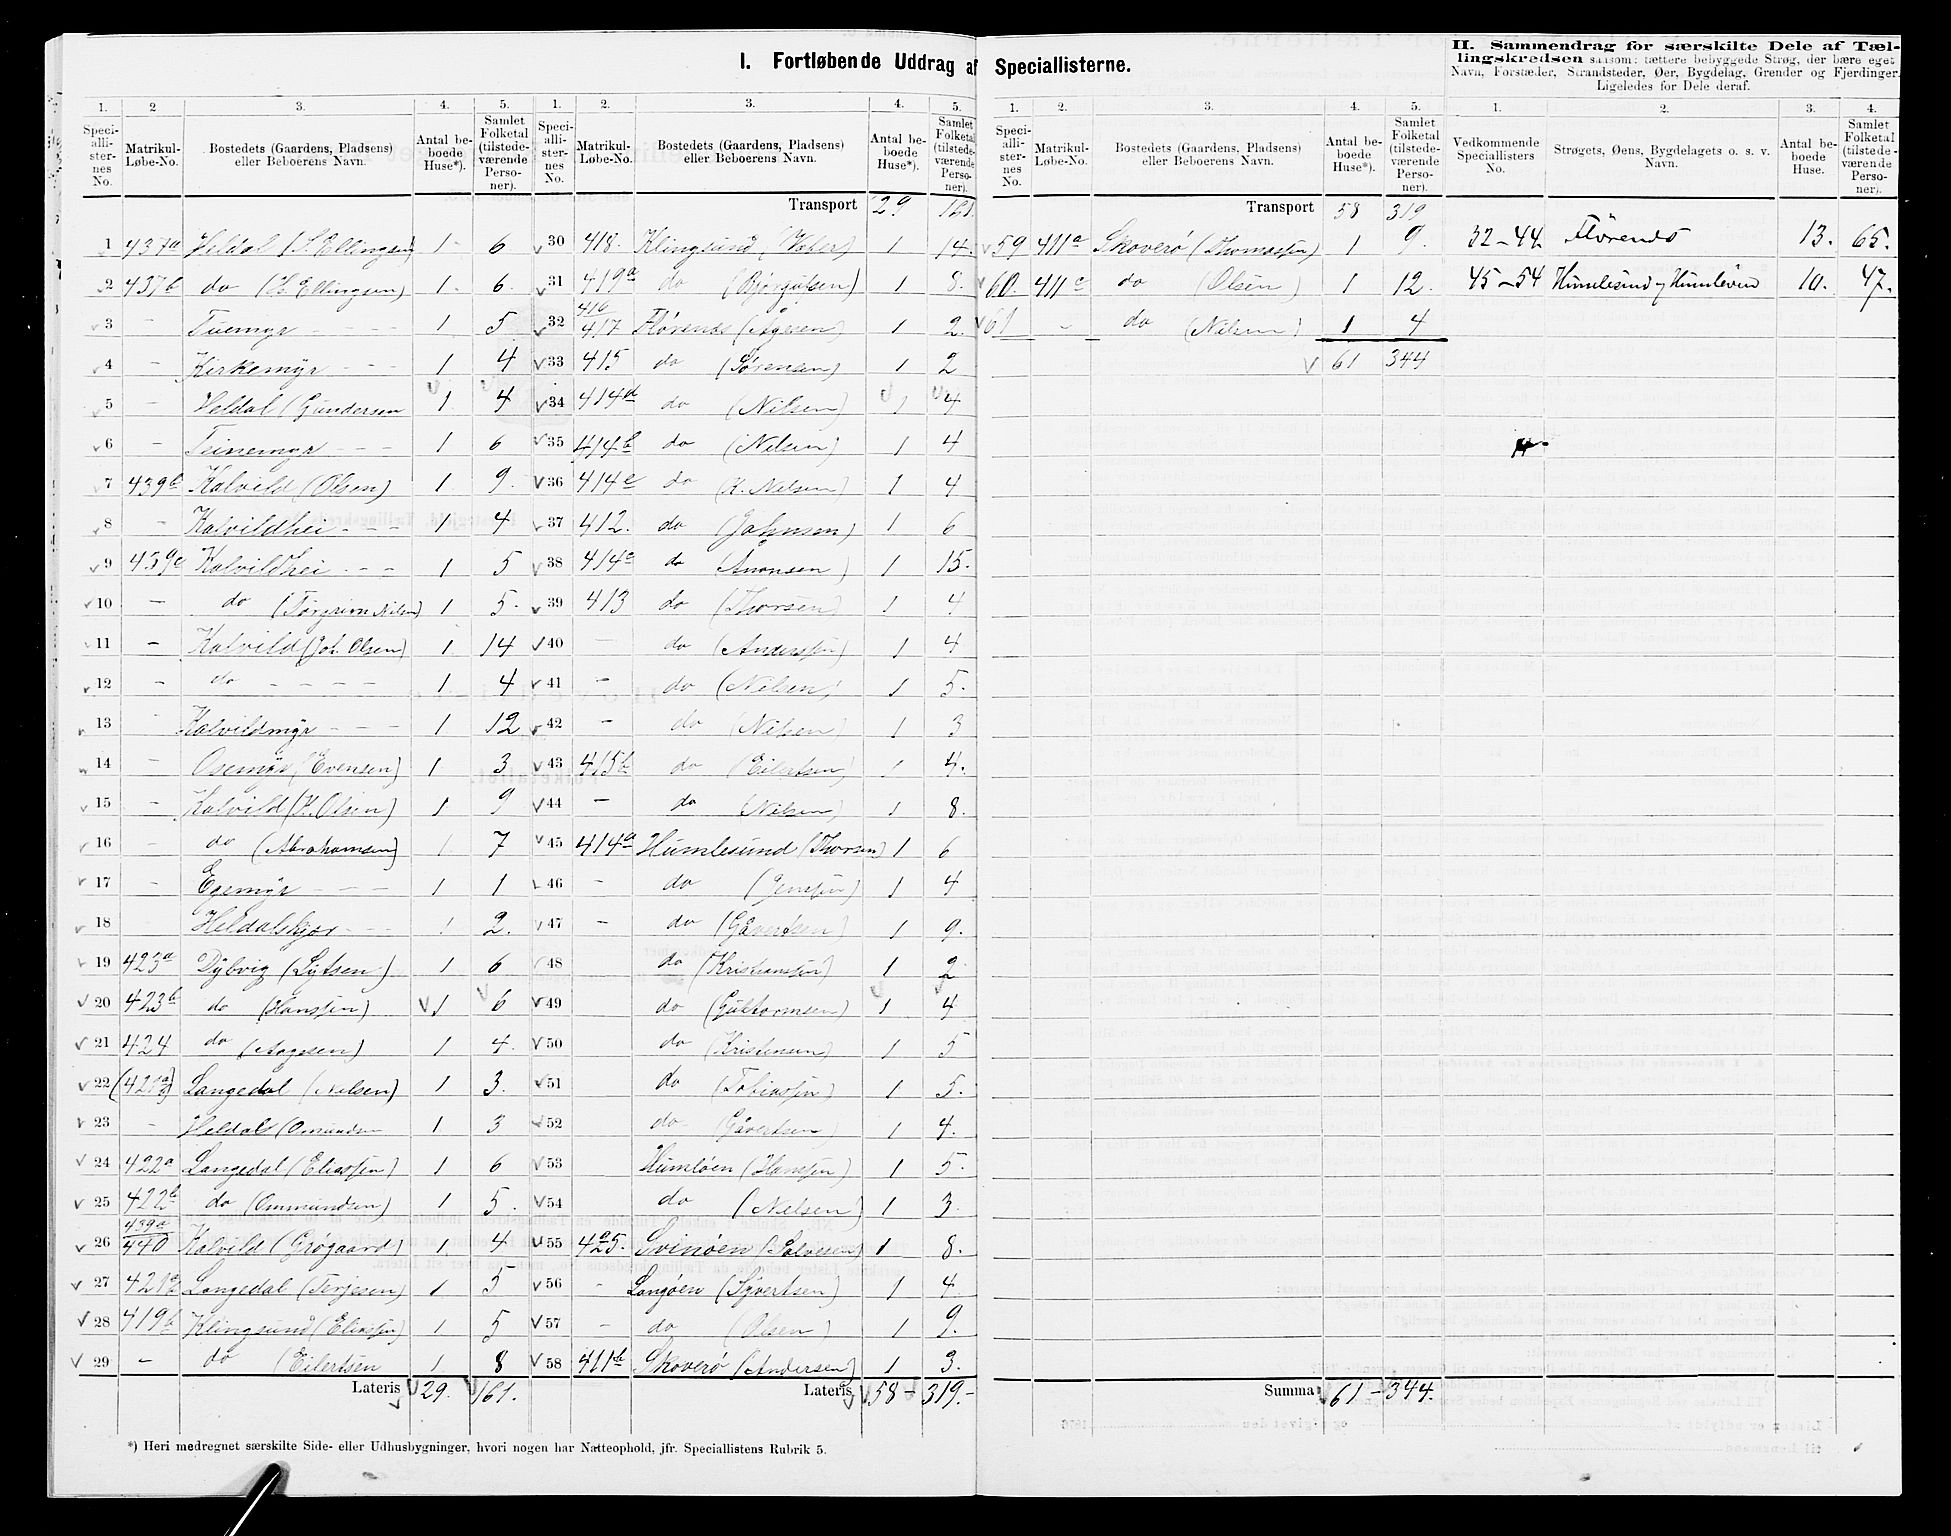 I. Fortløbende Uddrag af Speciallisterne.
II. Sammendrag for særskilte Dele af Tæl-
lingskredsen saasom: tættere bebyggede Strøg, der bære eget
Navn, Forstæder, Strandsteder, Øer, Bygdelag, Grender og Fjerdinger.
Ligeledes for Dele deraf.
1. 2 3. 4. 5.
Speci-alli-ster-nes No. Matrikul-Løbe-No. Bostedets (Gaardens, Pladsens) eller Beboerens Navn. Antal be-boede Huse*). Samlet Folketal (tilstede-værende Perso-ner).
1 437a Heldal (S. Ellingsen) 1 6
2 437b do (H. Ellingsen) 1 6.
3 Tuemyr - - - 1 5
4 - Kirkemyr - - - 1 4
5 - Heldal (Gundersen 1 4
6 - Teinemyr - - - 1 6
7 439b Kalvild (Olsen) 1 9.
8 - Kalvildhei - - - 1 4
9 439c Kalvildhei - - - 1 5
10 - do (Torgrim Nilsen) 1 5.
11 - Kalvild (Joh. Olsen) 1 14
12 - do - - - - 1 4
13 - Kalvildmyr - - - 1 12
14 - Osemyr (Evensen) 1 3
15 - Kalvild (K. Olsen) 1 9
16 - do (Abrahamsen) 1 7
17 - Egemyr - - - 1 1
18 Heldalskjær - - - 1 2.
19 423a Dybvig (Sytsen) 1 6
20 423b do (Hanssen) 1 6
21 424 do (Aagesen) 1 4.
22 Langedal (Nilsen) 1 3.
23 - Heldals (Omundsen 1 3
24 422a Langedal (Eliassen) 1 6
25 422b do (Ommundsen) 1 5.
26 439a 440 Kalvild (Grøgaard) 1. 4
27 Langedal (Terjesen) 1 5
28 419b Klingsund (Eliassen) 1 5
29 - do (Eilertsen 1 8
Lateris 29. 161.
*) Heri medregnet særskilte Side- eller Udhusbygninger, hvori nogen har Natteophold, jfr. Speciallistens Rubrik 5.
1. 2. 3. 4. 5.
Speci-alli-ster-nes No. Matrikul-Løbe-No. Bostedets (Gaardens, Pladsens) eller Beboerens Navn. Antal be-boede Huse*). Samlet Folketal (tilstede-værende Perso-ner).
Transport 29 161
30 418. Klingsund 1 14.
31 419a do 1 8.
32 416 417 Florenes (Ågesen) 1 2.
33 415 do (Sørensen) 1 2
34 414d do (Nilsen) 1 4
35 414b do (Nilsen) 1 4
36 414c do (K. Nilsen) 1 4
37 412. do (Johnsen) 1 6
38 do (Ånonsen) 1 15.
39 413 do (Thorsen) 1 4
40 - do (Anderssen) 1 4
41 - do (Nilsen) 1 5.
42 - do (Nilsen) 1 3
43 415b do (Eilertsen) 1 4.
44 - do (Nilsen) 1 8.
45 414a Humlesund (Thorsen) 1 6
46 - do (Jenssen) 1 4
47 - do (Gåvertsen) 1 9.
48 do (Kristianssen) 1 2
49 do (Guttormsen) 1 4
50 do (Kristensen) 1 5
51 do (Tobiassen) 1 5.
52 do (Gåvertsen) 1 4.
53 Humløen (Hanssen) 1 5.
54 do (Nilsen) 1 3.
55 425. Svinøen (Salvesen) 1 8.
56 - Langøen (Syvertsen) 1 4
57 - do (Olsen) 1 9.
58 411b Skoverö (Andersen) 1 3.
Lateris 58 - 319.-
1. 2. 3. 4. 5.
Speci-alli-ster-nes No. Matrikul-Løbe-No. Bostedets (Gaardens, Pladsens) eller Beboerens Navn. Antal be-boede Huse*). Samlet Folketal (tilstede-værende Perso-ner).
Transport 58 319
59 411a Skoverö (Thomassen) 1 9.
60. 411c do (Olsen) 1 12.
61 - do (Nilsen) 1 4
61 344
Summa 61 - 344.
1. 2. 3. 4.
Vedkommende Speciallisters No. Strøgets, Øens, Bygdelagets o. s. v. Navn. Antal be-boede Huse. Samlet Folketal (tilstede-værende Perso-ner).
32-44. Flörenes 13. 65.
45-54 Humlesund og Humleøen 10. 47.